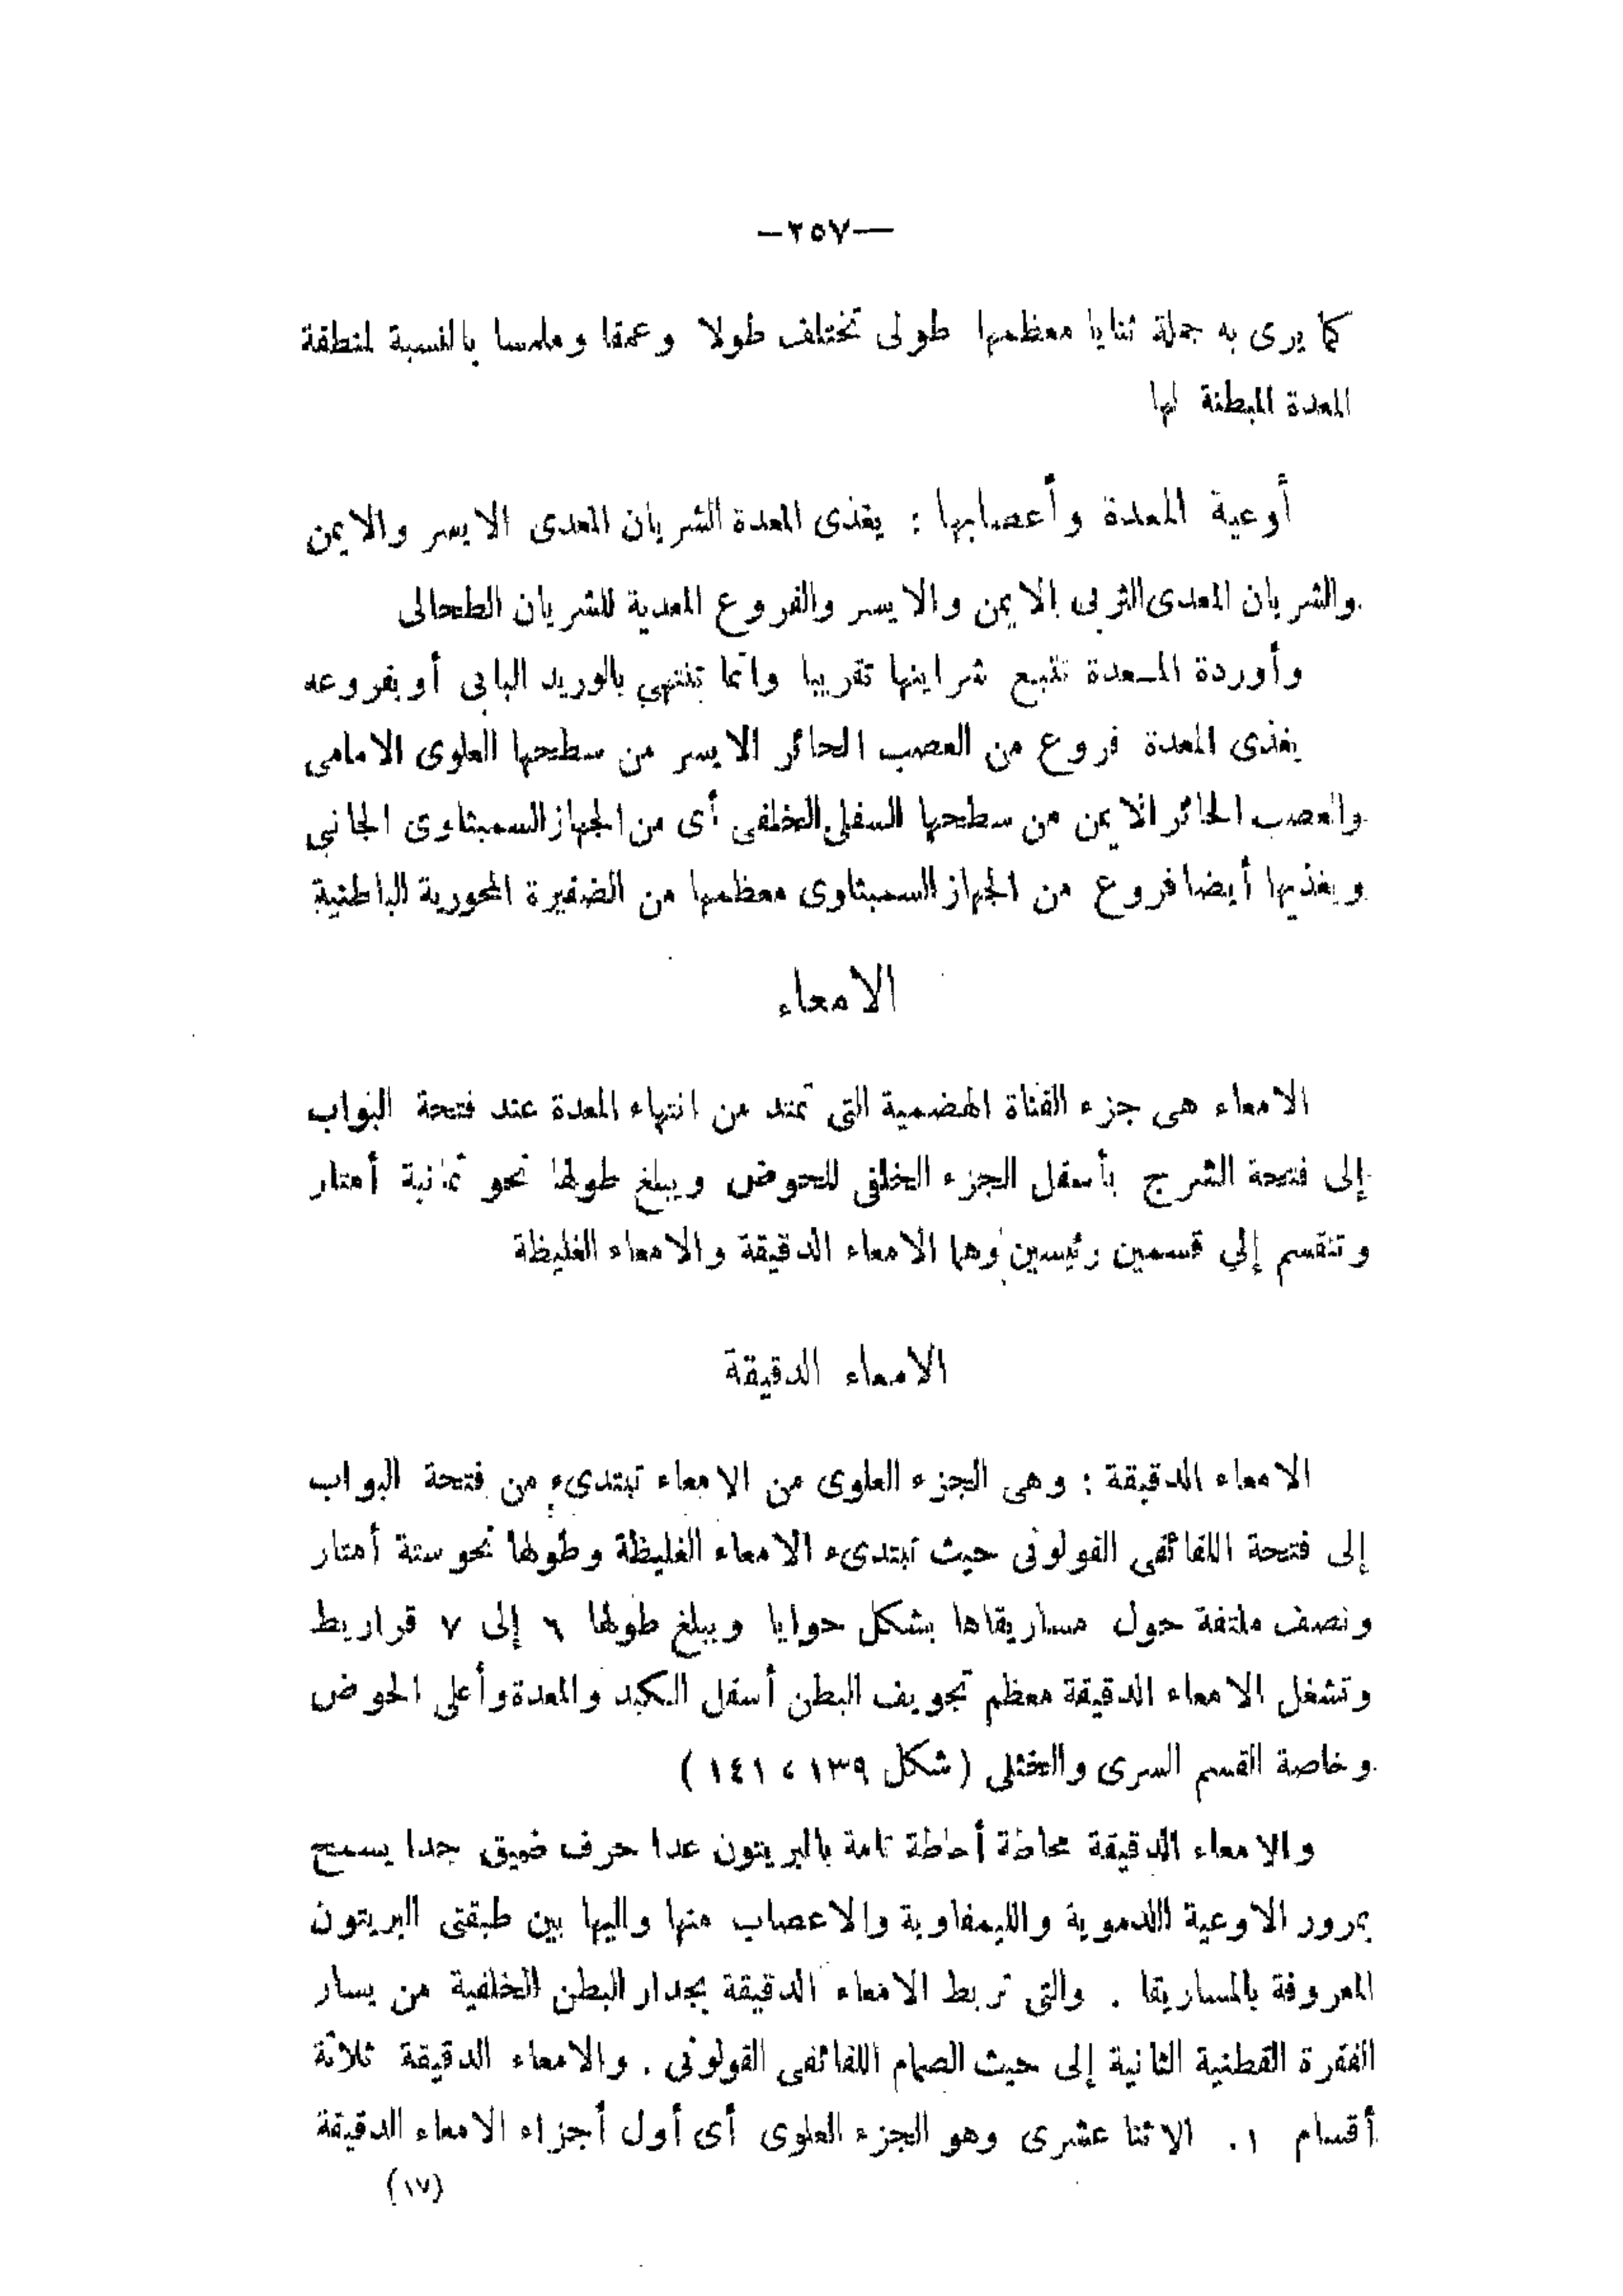 —٢٥٧—
كما يرى به جملة ثنايا معظمها طولى تختلف طولا وعمقا وملمسا بالنسبة لمنطقة
المعدة المبطنة لها
أوعية المعدة وأعصابها : يغذى المعدة الشريان المعدى الايسر والايمن
والشريان المعدى الثربى الايمن والايسر والفروع المعدية للشريان الطحالى
وأوردة المعدة تتبع شراينها تقريبا وانما تنتهي بالوريد البابى أو بفروعه
يغذى المعدة فروع من العصب الحائر الايسر من سطحها العلوى الامامى
والعصب الحائر الايمن من سطحها السفلى الخلفى أى من الجهاز السمبثاوى الجانبي
ويغذيها أيضا فروع من الجهاز السمبثاوى معظمها من الضفيرة المحورية الباطنية
الامعاء
الامعاء هى جزء القناة الهضمية التى تمتد من انتهاء المعدة عند فتحة البواب
إلى فتحة الشرج بأسفل الجزء الخلفى للحوض ويبلغ طولها نحو ثمانية أمتار
وتنقسم إلي قسمين رئيسين وهما الامعاء الدقيقة والامعاء الغليظة
الامعاء الدقيقة
الامعاء الدقيقة : وهى الجزء العلوى من الامعاء تبتدىء من فتحة البواب
إلى فتحة اللفائفى القولونى حيث تبتدىء الامعاء الغليظة وطولها نحو ستة أمتار
ونصف ملتفة حول مساريقاها بشكل حوايا ويبلغ طولها ٦ إلى ٧ قراريط
وتشغل الامعاء الدقيقة معظم تجويف البطن أسفل الكبد والمعدة وأعلى الحوض
وخاصة القسم السرى والخثلى ( شكل ١٣٩ ، ١٤١ )
والامعاء الدقيقة محاطة أحاطة تامة بالبريتون عدا حرف ضيق جدا يسمح
بمرور الاوعية الدموية والليمفاوية والاعصاب منها واليها بين طبقتى البريتون
المعروفة بالمساريقا . والتى تربط الامعاء الدقيقة بجدار البطن الخلفية من يسار
الفقرة القطنية الثانية إلى حيث الصمام اللفائفى القولونى . والامعاء الدقيقة ثلاثة
أقسام ١. الاثنا عشرى وهو الجزء العلوى أى أول أجزاء الامعاء الدقيقة
(١٧)